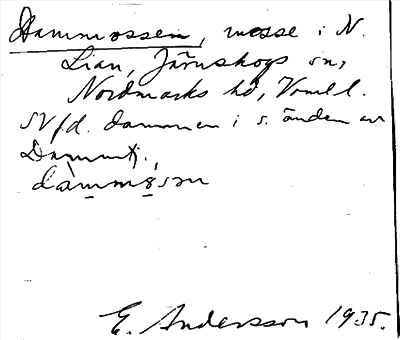 Dammossen, mosse i N.
Lian, Järnskogs sn,
Nordmarks hd, Vrml l.
SV f.d. dammen i s. änden av
Dammtj.,
dàmmɷ̀sən
E. Andersson 1935.